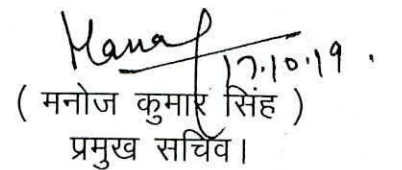 17.10.19.
( मनोज कुमार सिंह )
प्रमुख सचिव।